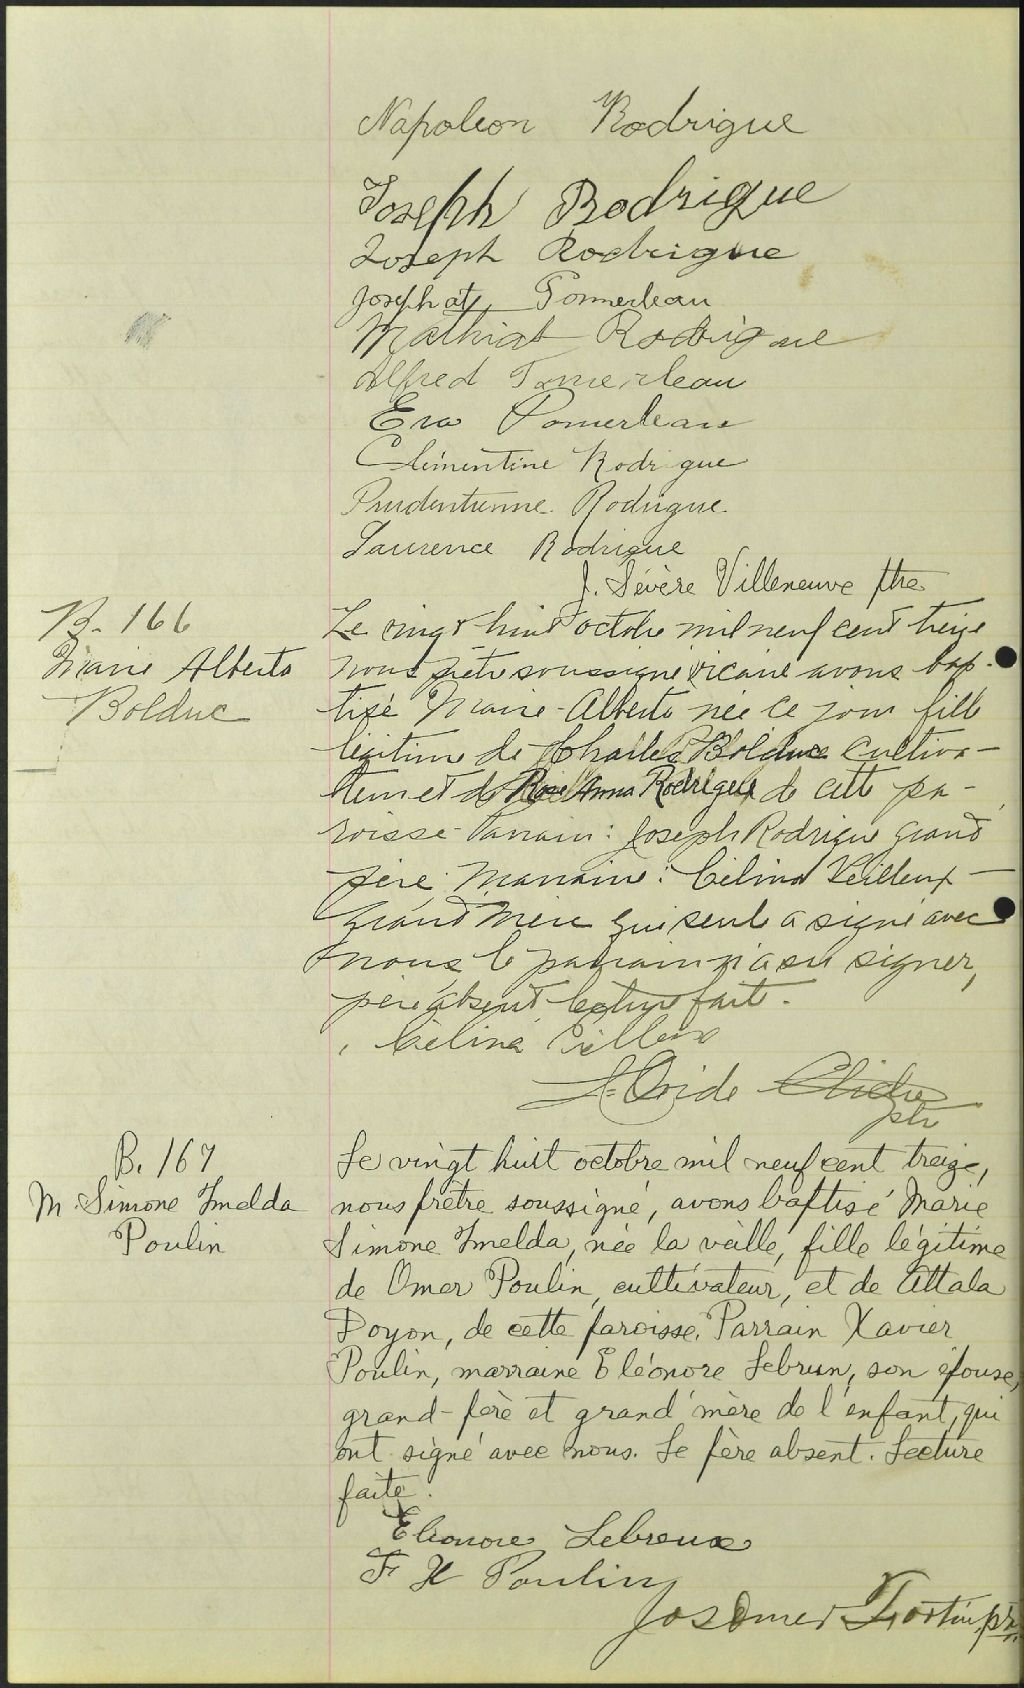 Napoleon Rodrigue
Joseph Rodrigue
Joseph Rodrigue
Josephat Pomerleau
Mathias Rodrigue
Alfred Pomerleau
Eva Pomerleau
Clémentine Rodrigue
Prudentienne Rodrigue
Laurence Rodrigue
J. Sévère Villeneuve ptre
B. 166
Marie Alberta
Bolduc
Le vingt huit octobre mil neuf cent treize
nous prêtre soussigné vicaire avons bap-
tisé Marie-Alberta née ce jour fille
légitime de Charles Bolduc cultiva-
teur et de Rose Anna Rodrigue de cette pa-
roisse Parrain: Joseph Rodrigue grand
père Marraine: Célina Veilleux
grand mère qui seule a signé avec
nous le parrain n'a su signer,
père absent lecture faite.
Célina
B. 167
M. Simone Imelda
Poulin
Le vingt huit octobre mil neuf cent treize,
nous prêtre soussigné, avons baptisé Marie
Simone Imelda, née la veille, fille légitime
de Omer Poulin, cultivateur, et de Attala
Doyon, de cette paroisse. Parrain Xavier
Poulin, marraine Eléonore Lebrun, son épouse,
grand-père et grand'mère de l'enfant, qui
ont signé avec nous. Le père absent. Lecture
faite.
Eleonore Lebreux
F X Poulin
Jos Omer Fortin, ptr.